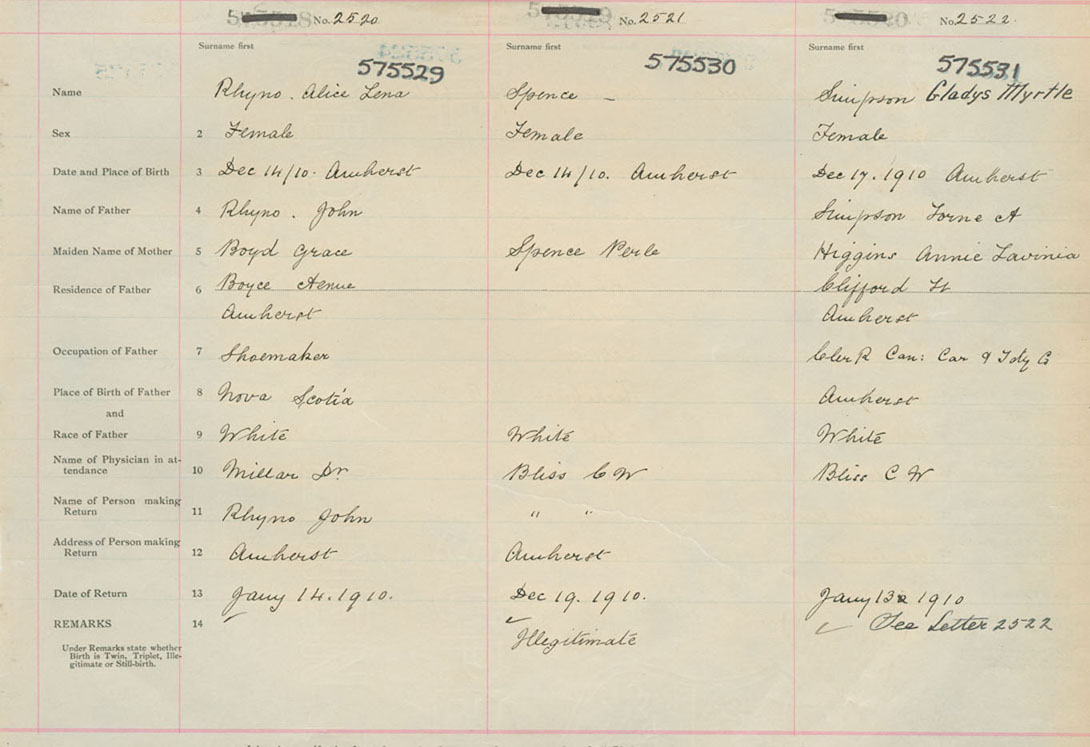 No. 2520
No. 2521
No. 2522
Surname first
Surname first
Surname first
575529
575530
575531
Name
Rhyno. Alice Lena
Spence –
Simpson Gladys Myrtle
Sex
2
Female
Female
Female
Date and Place of Birth
3
Dec 14/10. Amherst
Dec 14/10. Amherst
Dec 17. 1910 Amherst
Name of Father
4
Rhyno. John
Simpson Lorne A
Maiden Name of Mother
5
Boyd Grace
Spence Perle
Higgins Annie Lavinia
Residence of Father
6
Boyce Avenue
Clifford St
Amherst
Amherst
Occupation of Father
7
Shoemaker
Clerk Can: Car & Fdy Co
Place of Birth of Father
8
Nova Scotia
Amherst
and
Race of Father
9
White
White
White
Name of Physician in at-
tendance
10
Millar Dr.
Bliss C W
Bliss C W
Name of Person making
Return
11
Rhyno John
" "
Address of Person making
Return
12
Amherst
Amherst
Date of Return
13
Jany 14. 1910.
Dec 19. 1910.
Jany 13 1910
REMARKS
14
See Letter 2522
Illegitimate
Under Remarks state whether
Birth is Twin, Triplet, Ille-
gitimate or Still-birth.